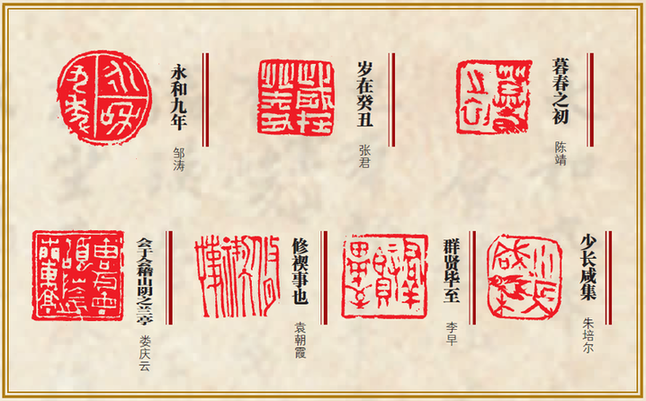 永和九年
邹涛
岁在癸丑
张君
暮春之初
陈靖
会于会稽山阴之兰亭
娄庆云
修禊事也
袁朝霞
群贤毕至
李早
少长咸集
朱培尔